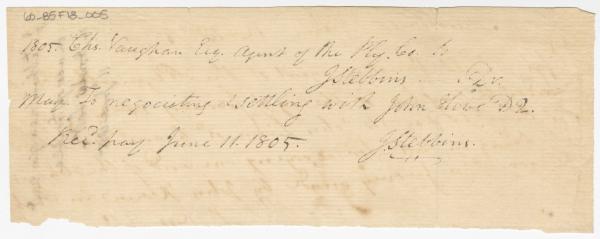 60-85F13_005
1805. Chs. Vaughan Esq. Agent of the Ply. Co. to
J Stebbins Dr.
May To negociating & settling with John
Recd. pay June 11. 1805. J Stebbins.